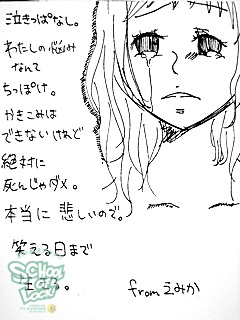 泣きっぱなし。
わたしの悩み
なんて
ちっぽけ。
かきこみは
できないけれど
絶対に
死んじゃダメ。
本当に 悲しいので。
笑える日まで
。
from えみか
SCHOOL OF LOCK!